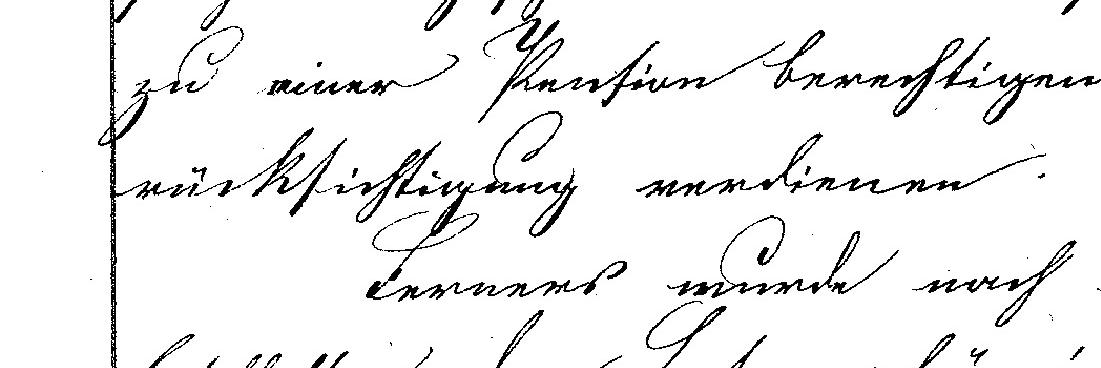 zu einer Pension berechtigen
rücksichtigung verdienen.
Ferners wurde nach